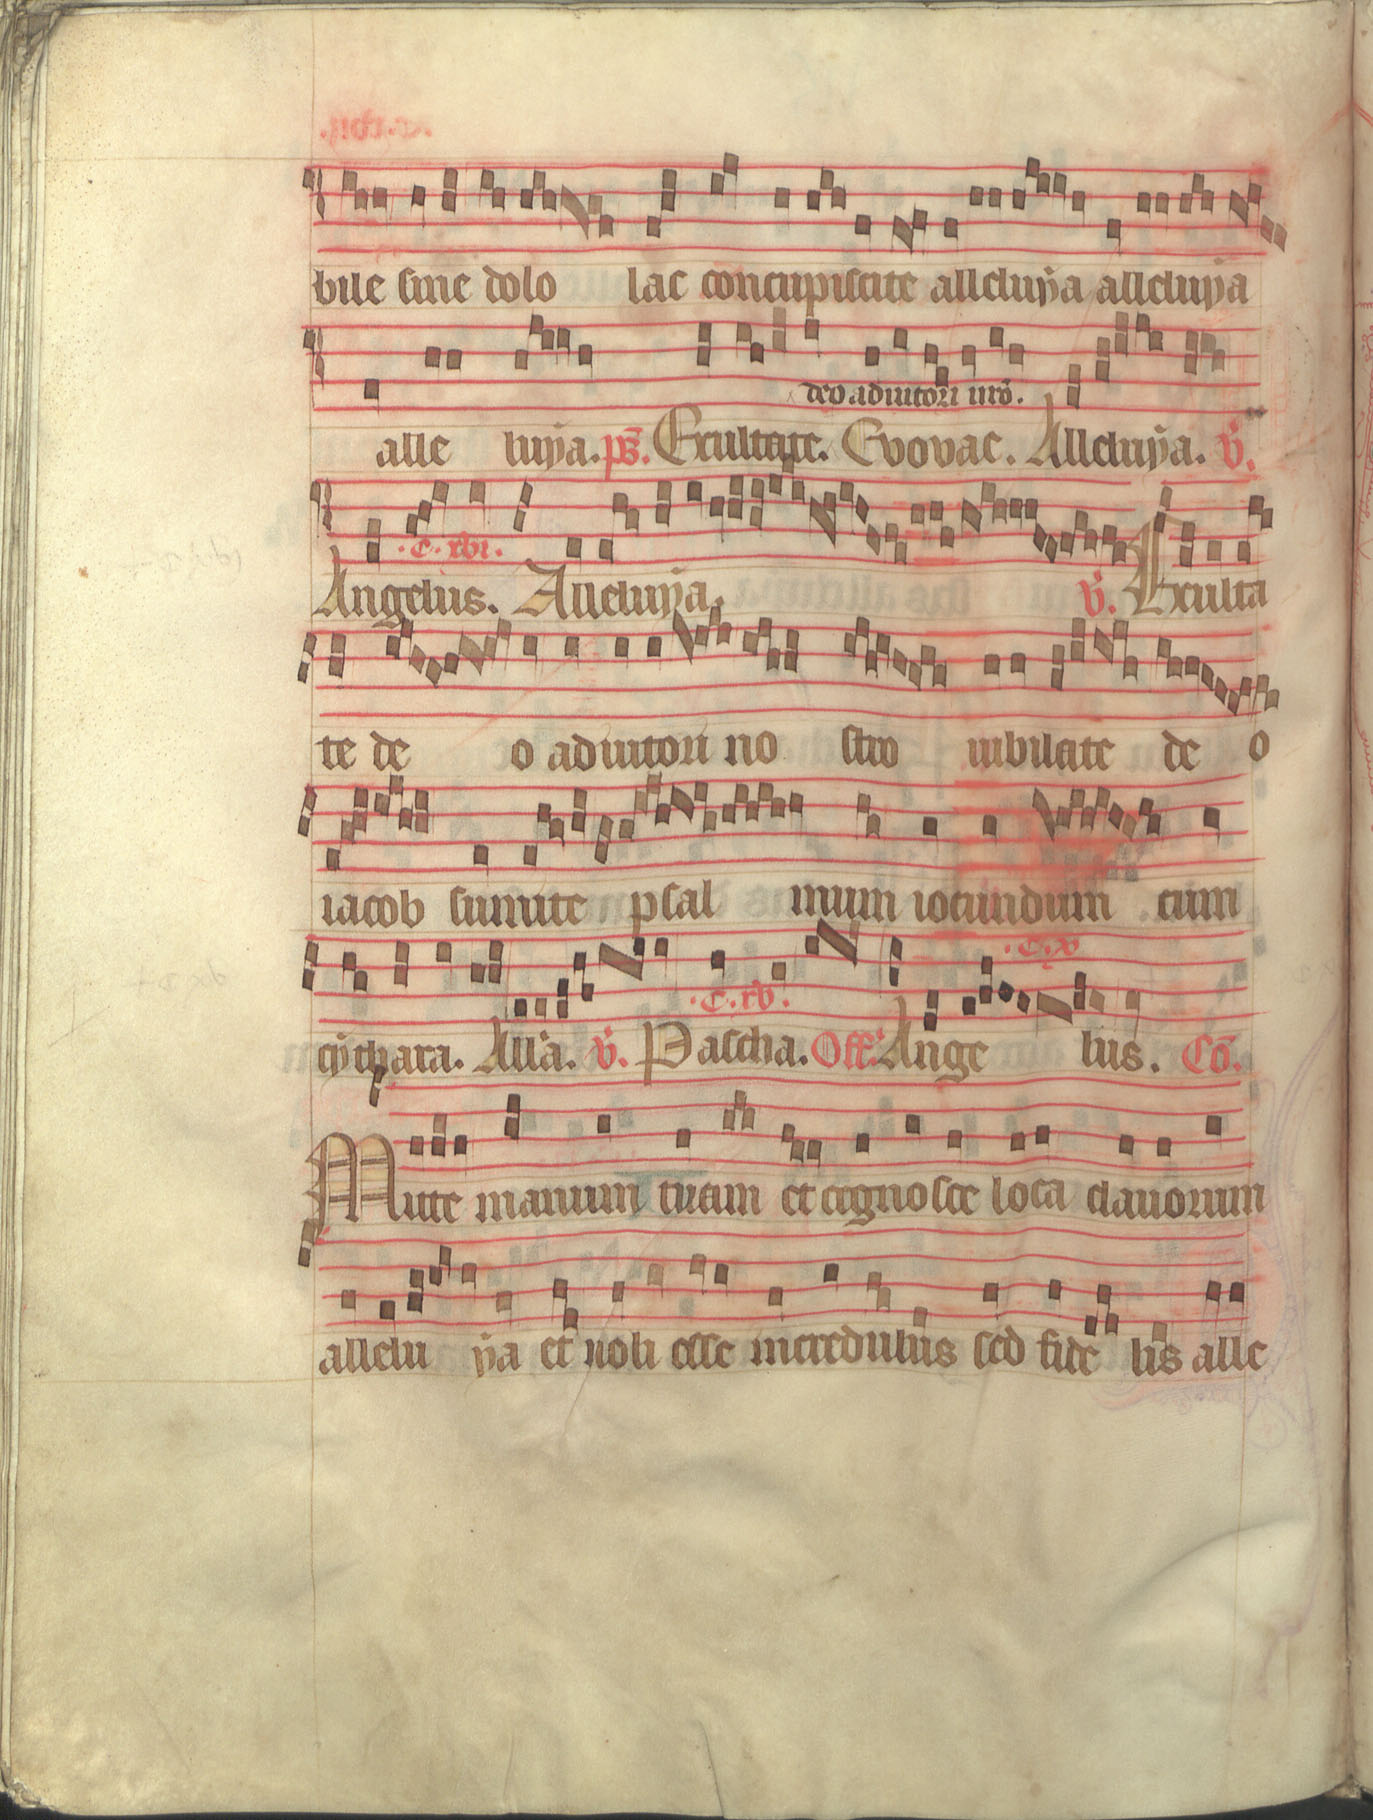 bile sine dolo lac concupiscite alleluÿa alleluÿa
deo adiutori nr̄o.
alle luÿa. ps̄. Exultate. Evovae. Alleluÿa. v̄.
.c. xvi.
Angelus. Alleluÿa. v̄. Exulta
te de o adiutori no stro iubilate de o
iacob sumite psal mum iocundum cum
.c. xv
.c. xv.
cÿthara. All'a. v̄. Pascha. Off. Ange lus. Cō.
Mitte manum tuam et cognosce loca clauorum
allelu ÿa et noli esse incredulus sed fide lis alle